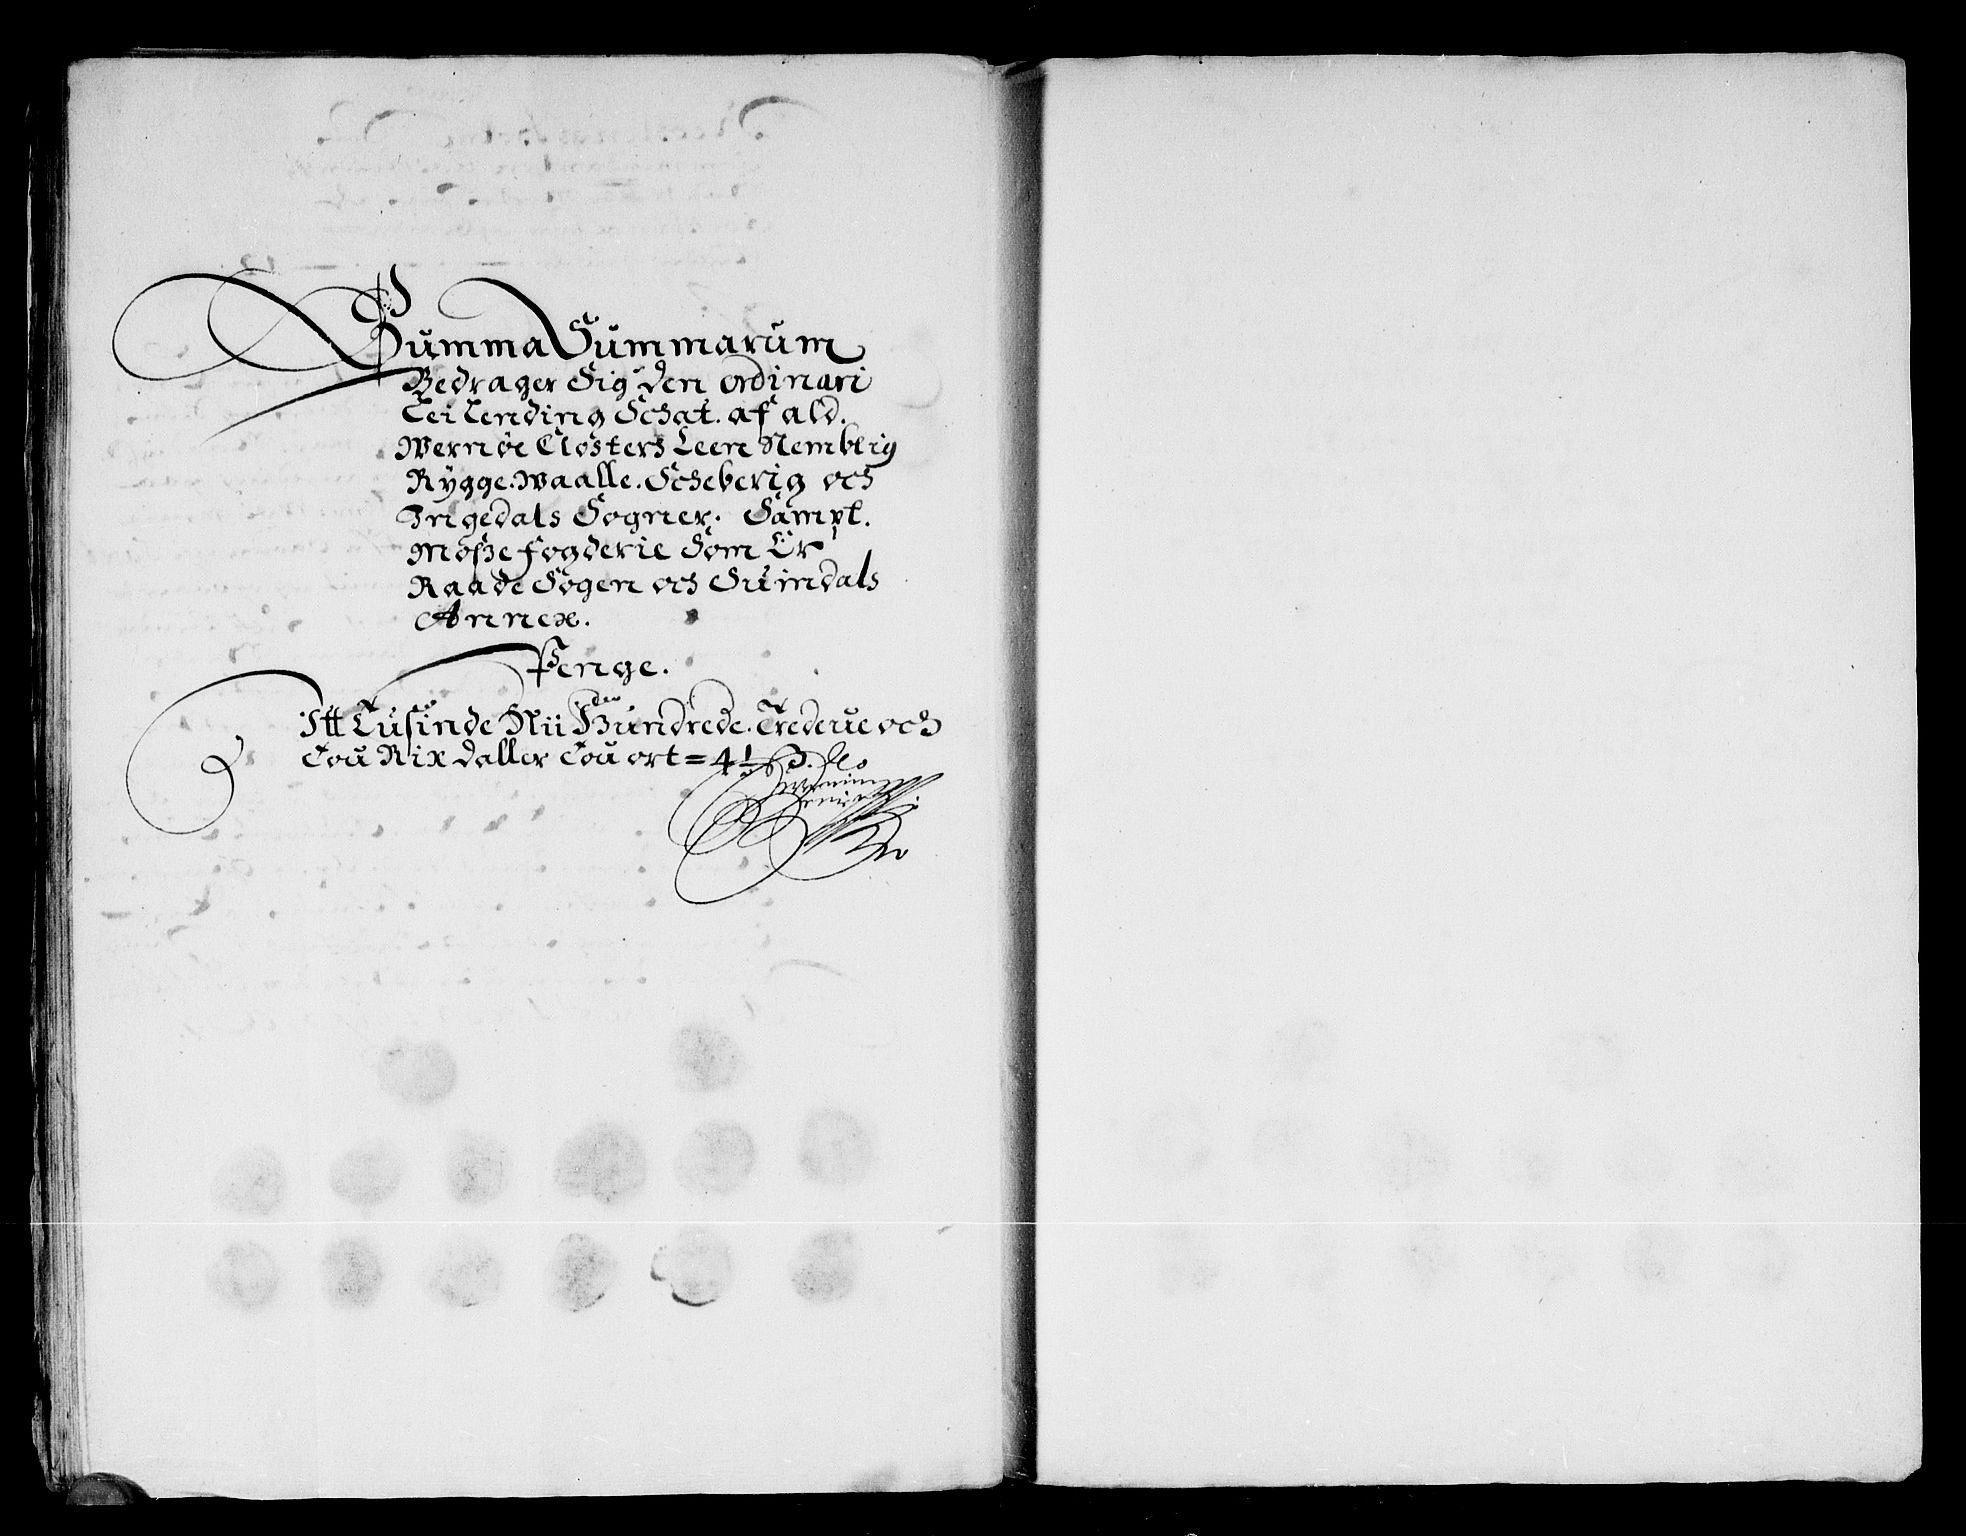 Summa Summarum
Bedrager Sig den ordinari
Leilending Schat. af ald.
Wernøe Closters Leen Nemblig
Rygge. Waalle. Scheberig och
Ingedals Sogner. Sampt.
Mosse fogderie Som Er
Raade Sogen och Suindals
Annex.
Penge.
Itt Tusinde Nii Hundrede. Tredeue och
Tou Rix daller Tou ort = 4½ ß.